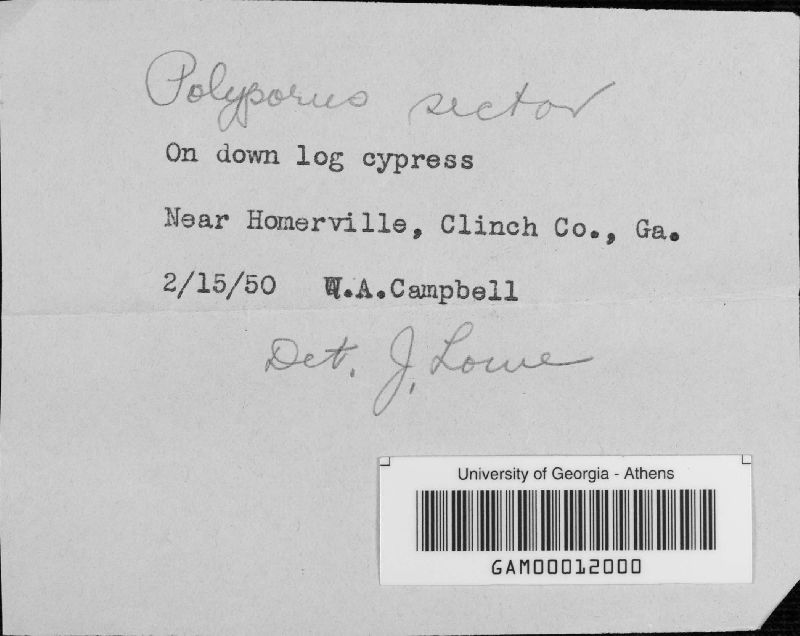 Polyporus sector
On down log cypress
Near Homerville, Clinch Co., Ga.
2/15/50 W.A.Campbell
Det. J. Lowe
University of Georgia - Athens
GAM00012000